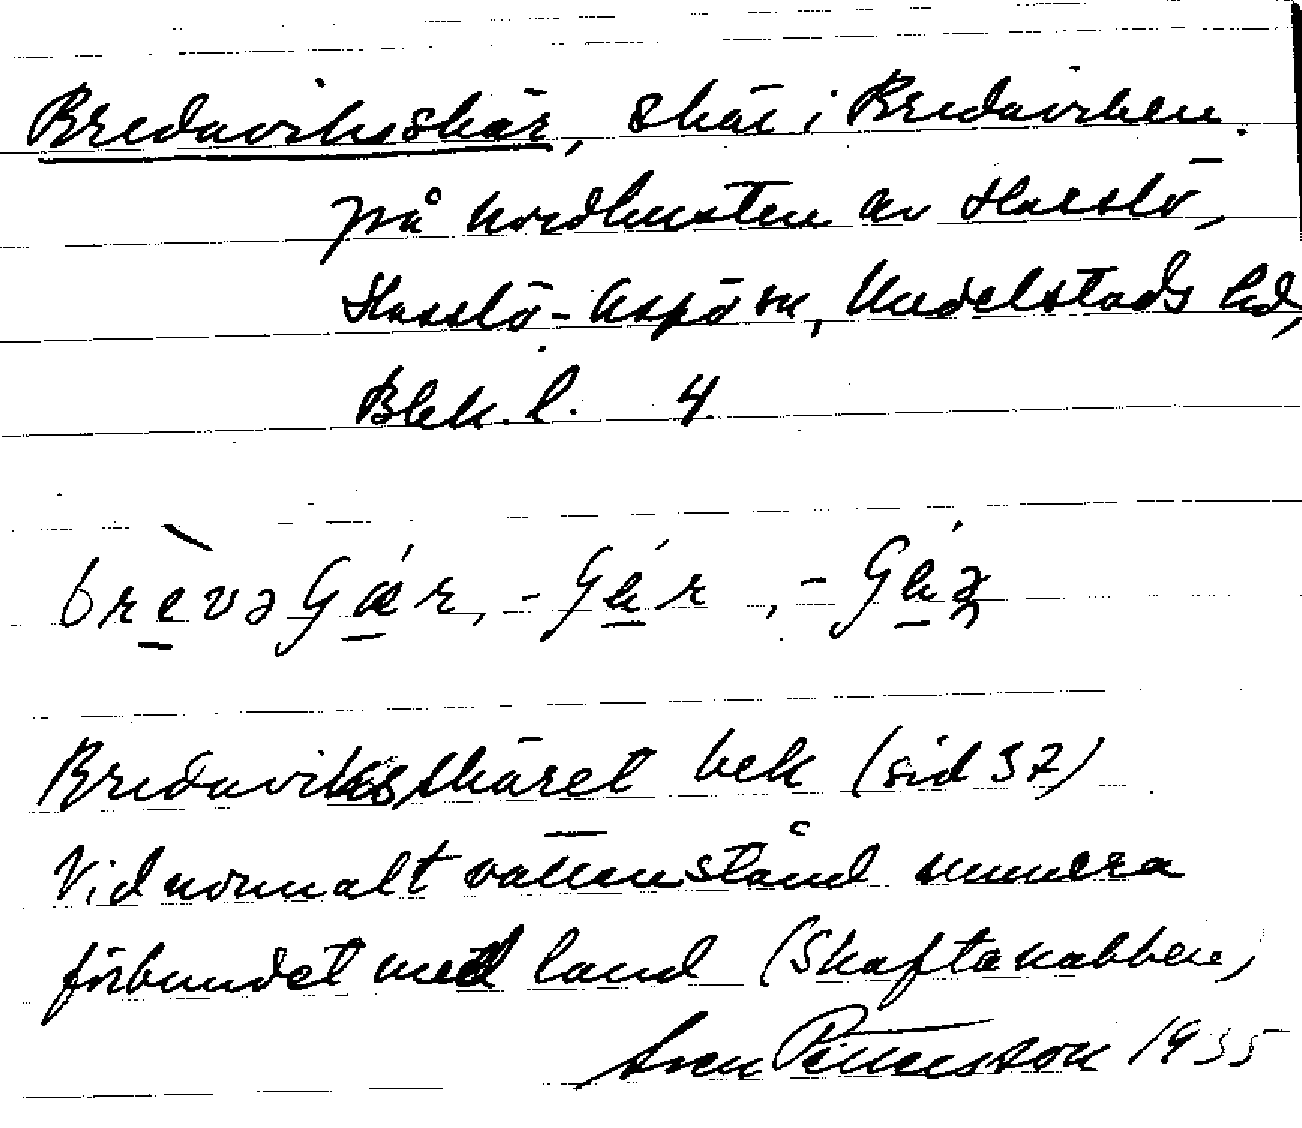 Bredaviksskär, skär i Bredaviken.
på nordkusten av Hasslö,
Hasslö-Aspö sn, Medelstads hd,
Blek. l. 4
Bredaviksskäret bek (sid 37)
Vid normalt vattenstånd numera
förbundet med land (Skaftanabben)
Sven Pettersson 1935